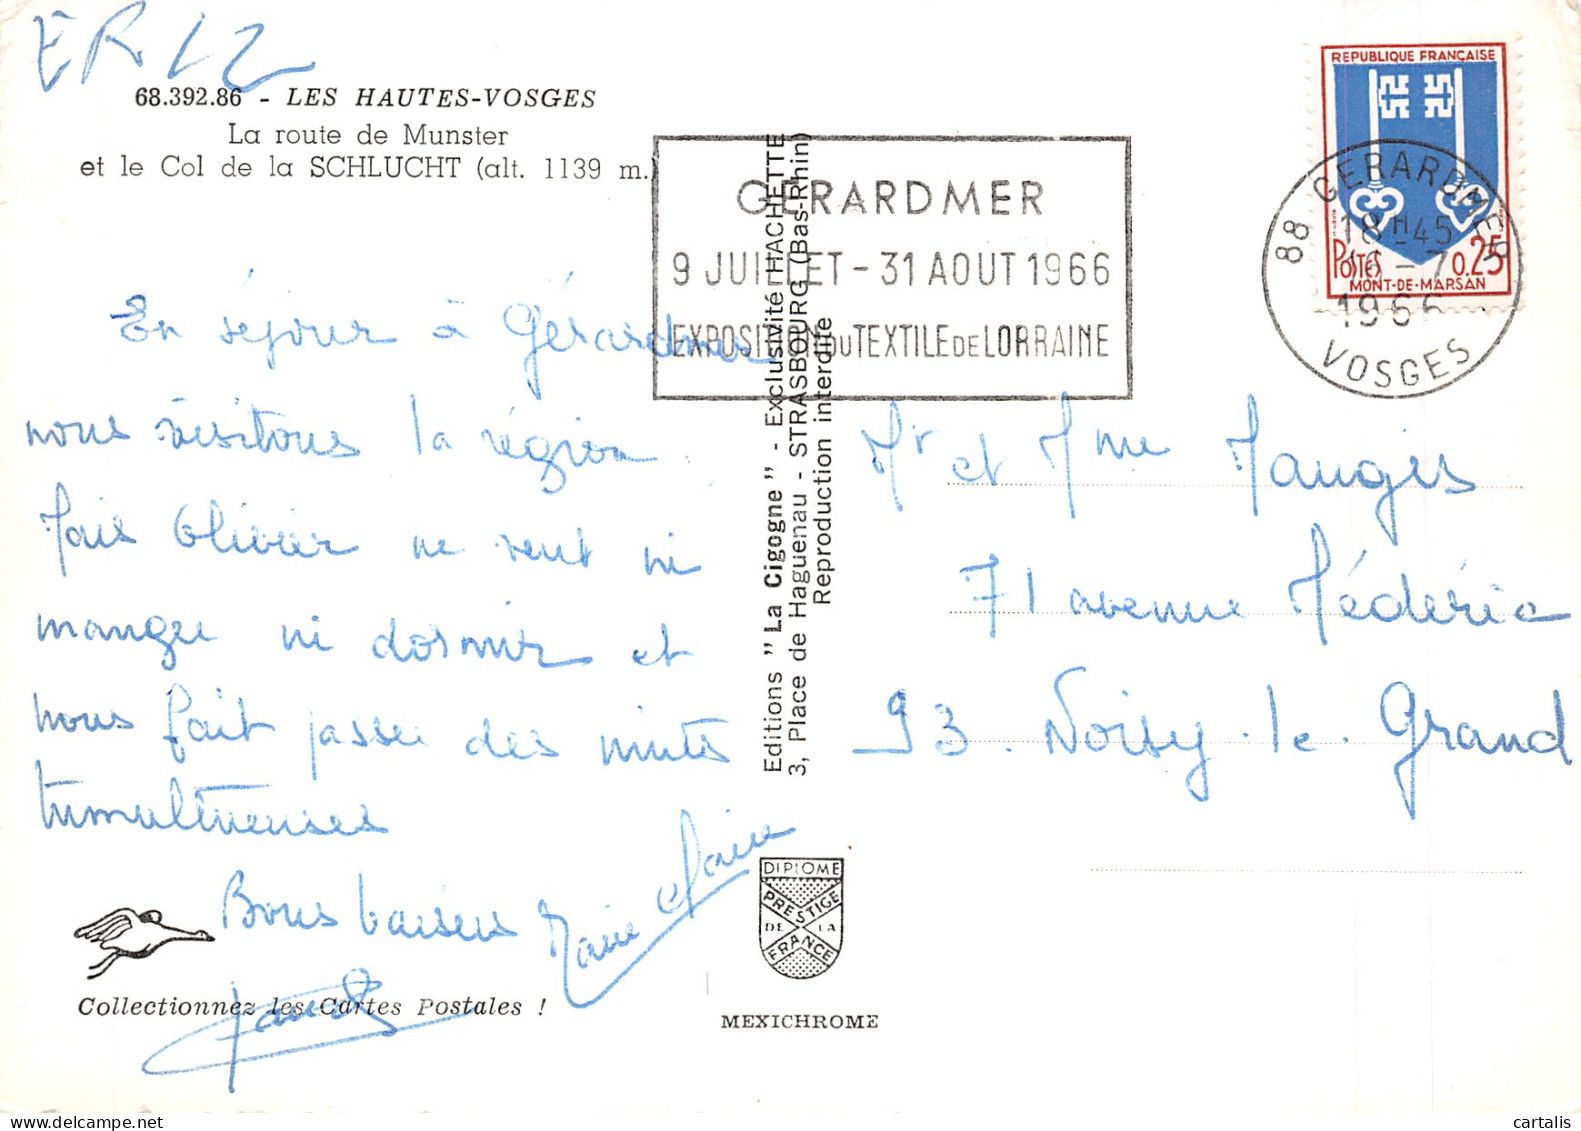 ER 12
68.392.86 - LES HAUTES-VOSGES
La route de Munster
et le Col de la SCHLUCHT (alt. 1139 m.)
GERARDMER
9 JUILLET - 31 AOUT 1966
EXPOSITION DU TEXTILE DE LORRAINE
REPUBLIQUE FRANÇAISE
POSTES 0.25
MONT-DE-MARSAN
88 GERARDMER
18H45
16-7
1966
VOSGES
En séjour à Gérardmer
nous visitons la région.
Mais Olivier ne veut ni
manger ni dormir et
nous fait passer des nuits
tumultueuses
Bons baisers Marie Claire
Collectionnez les Cartes Postales !
Editions "La Cigogne" - Exclusivité HACHETTE
3, Place de Haguenau - STRASBOURG (Bas-Rhin)
Reproduction interdite
Mr et Mme Mauger
71 avenue Médéric
93. Noisy-le-Grand
DIPLOME
PRESTIGE
DE LA
FRANCE
MEXICHROME
cartalis